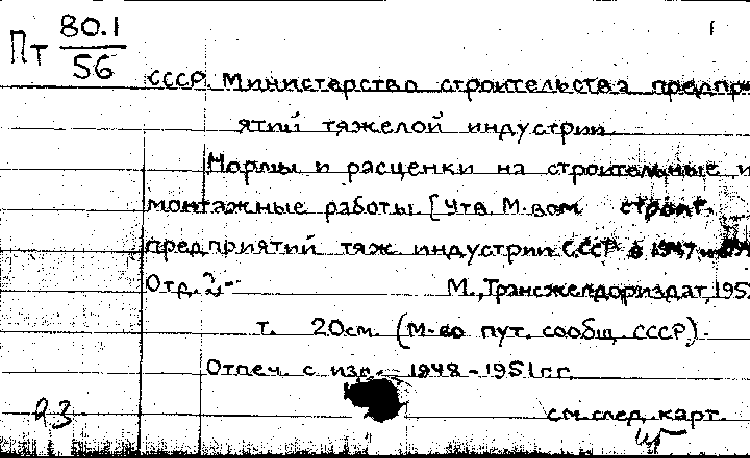 Пт 80.1
56
СССР. Министерство строительства предпри
ятий тяжелой индустрии
Нормы и расценки на строительные и
монтажные работы. [Утв. М-вом строит.
предприятий тяж. индустрии СССР в 1947
Отд. 2-
М., Трансжелдориздат, 195
т. 20см. (М-во пут. сообщ. СССР).
Отпеч. с изд. 1948-1951 гг.
см. след. карт.